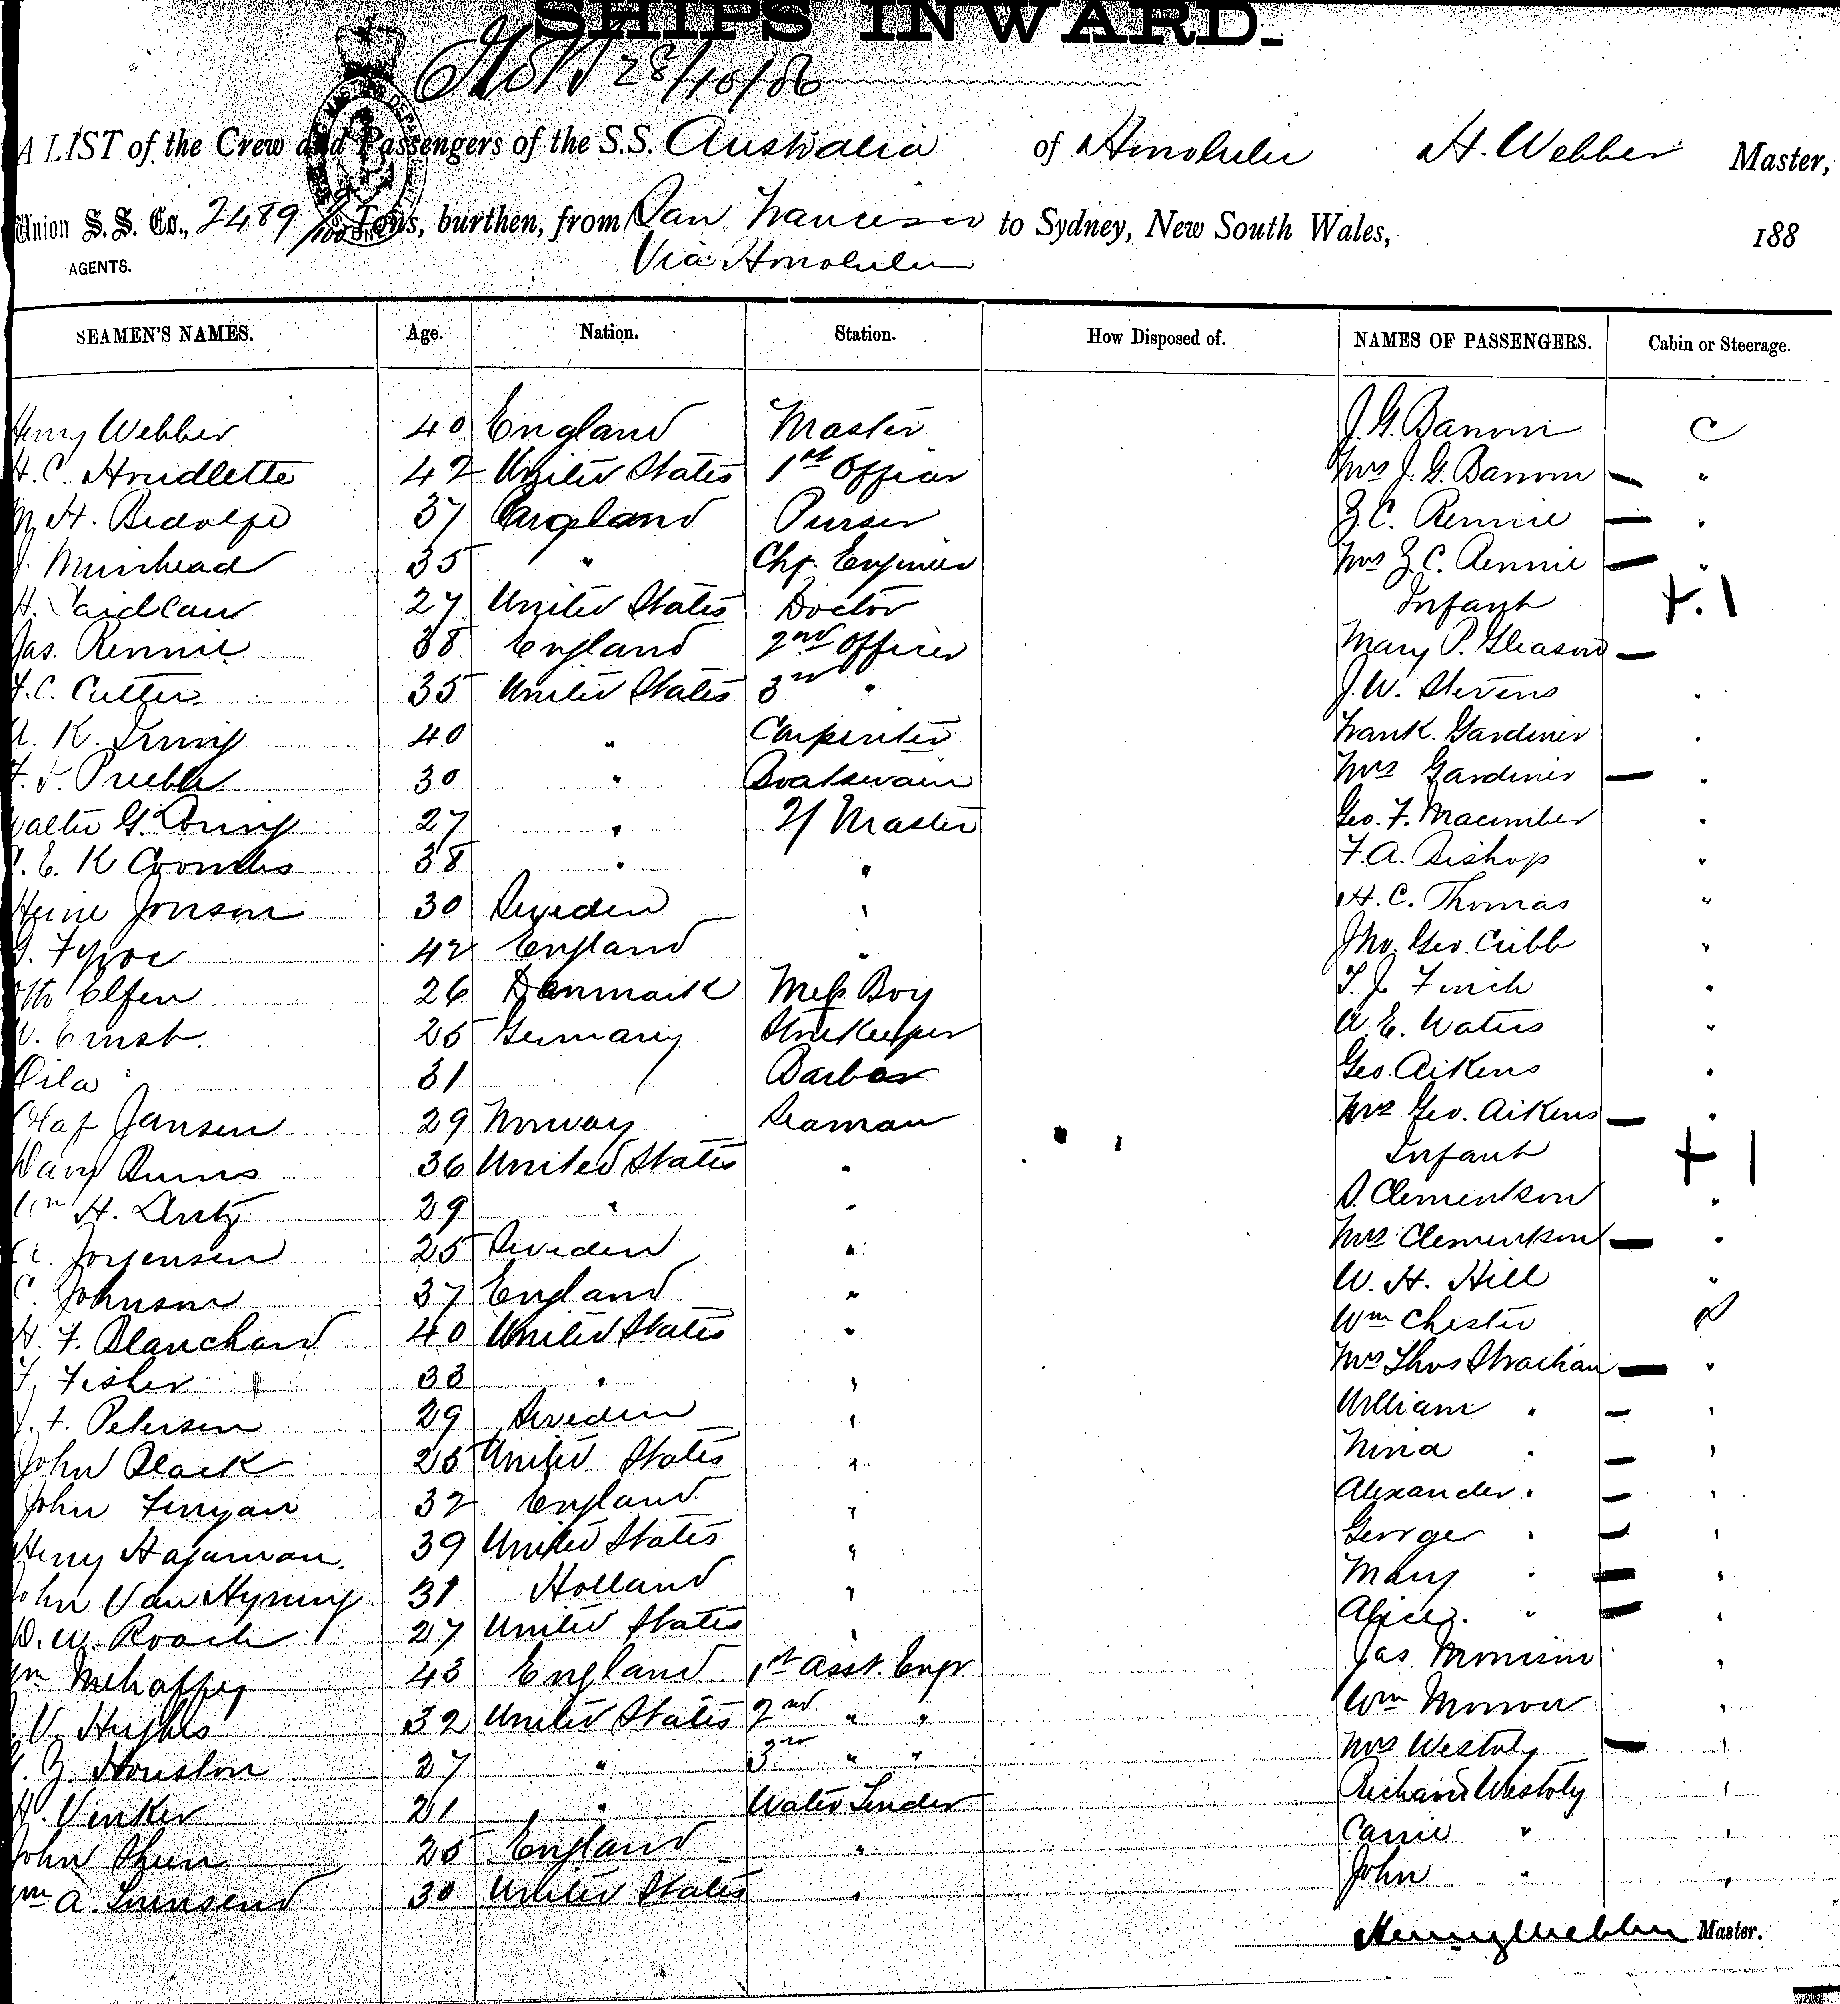 SHIPS INWARD.
28/10/86
A LIST of the Crew and Passengers of the S.S. Australia of Honolulu H. Webber Master,
Union S. S. Co., 2489 Tons, burthen, from San Francisco to Sydney, New South Wales, 188
AGENTS. Via Honolulu
SEAMEN'S NAMES. Age. Nation. Station. How Disposed of. NAMES OF PASSENGERS. Cabin or Steerage.
Henry Webber 40 England Master J. G. C
H. C. Houdlette 42 United States 1st Officer Mrs J. G. — "
37 England Purser Z. C. Rennie — "
J. Muirhead 35 " Chf. Engineer Mrs Z. C. Rennie — "
H. Laidlaw 27 United States Doctor Infant +. 1
Jas. Rennie 38 England 2nd Officer Mary P. Gleason —
F. C. Cutter 35 United States 3rd " J. W. Stevens "
A. K. 40 " Carpenter Frank Gardiner "
30 " Boatswain Mrs Gardiner — "
Walter G. 27 " 2/ Master Geo. F. Macumber "
E. K Coombs 38 " " F. A. Bishop "
Jonson 30 Sweden " H. C. Thomas "
42 England " Jno. Geo. Cribb "
Otto Elfen 26 Denmark Mess Boy T. J. Finch "
Ernst 25 Germany Storekeeper A. E. Waters "
31 Barber Geo. Aikens "
Olaf Jansen 29 Norway Seaman Mrs Geo. Aikens — "
Davy Burns 36 United States " Infant + 1
Wm H. 29 " " S. Clemenkson "
Jorgensen 25 Sweden " Mrs Clemenkson — "
C. Johnson 37 England " W. H. Hill "
H. F. Blanchard 40 United States " Wm Chester S
F. Fisher 33 " " Mrs Thos Strachan — "
Petersen 29 Sweden " William " — "
John Black 25 United States " Nina " — "
John Finyan 32 England " Alexander " — "
Henry Hagaman 39 United States " George " — "
John Van Hyning 31 Holland " Mary " — "
W. Roach 27 United States " Alice " — "
Wm Mehaffey 43 England 1st Asst. Engr Jas. Morrison "
Hughes 32 United States 2nd " " Wm Morrow "
Z. Houston 27 " 3rd " " Mrs Westoby — "
H. Venker 21 " Water Tender Richard Westoby "
John 25 England " Carrie " "
Wm A. Townsend 30 United States " John " "
Henry Webber Master.